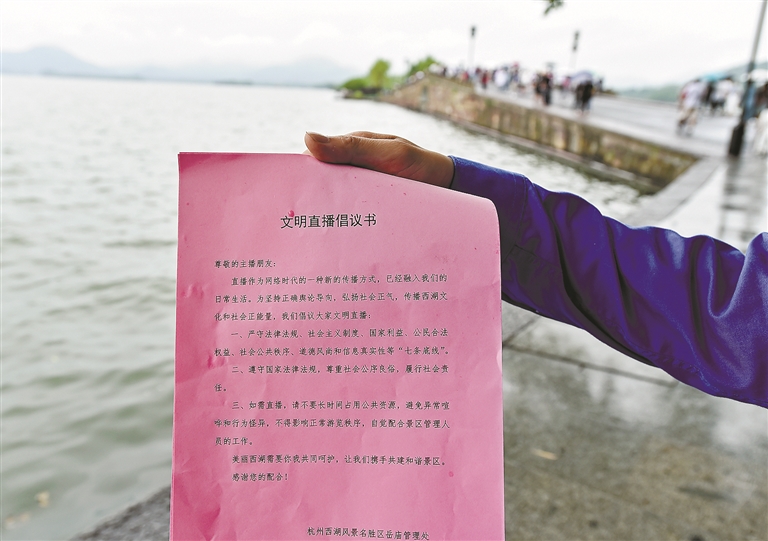 文明直播倡议书
尊敬的主播朋友：
直播作为网络时代的一种新的传播方式，已经融入我们的
日常生活。为坚持正确舆论导向，弘扬社会正气，传播西湖文
化和社会正能量，我们倡议大家文明直播：
一、严守法律法规、社会主义制度、国家利益、公民合法
权益、社会公共秩序、道德风尚和信息真实性等“七条底线”。
二、遵守国家法律法规，尊重社会公序良俗，履行社会责
任。
三、如需直播，请不要长时间占用公共资源，避免异常喧
哗和行为怪异，不得影响正常游览秩序，自觉配合景区管理人
员的工作。
美丽西湖需要你我共同呵护，让我们携手共建和谐景区。
感谢您的配合！
杭州西湖风景名胜区岳庙管理处